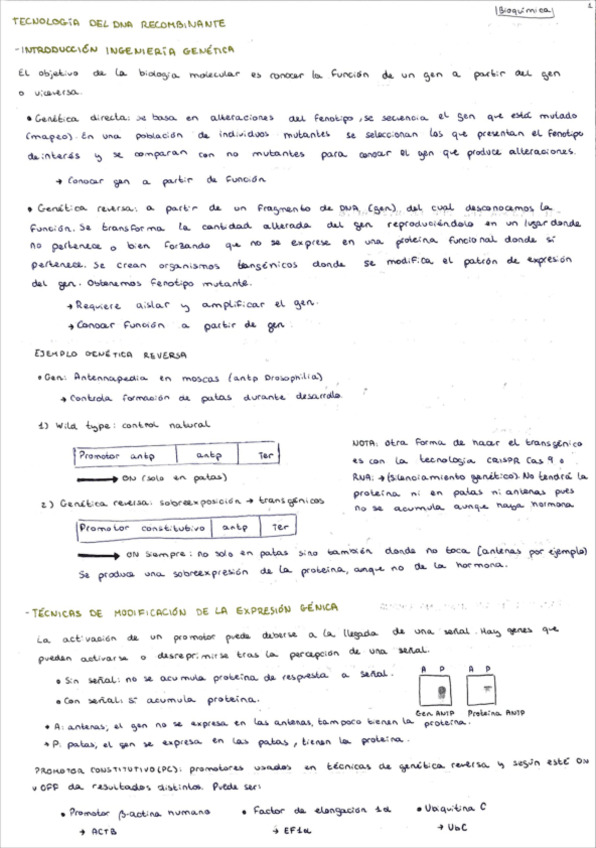 Bioquímica
1
TECNOLOGÍA DEL DNA RECOMBINANTE
-INTRODUCCIÓN INGENIERÍA GENÉTICA
El objetivo de la biología molecular es conocer la función de un gen a partir del gen
o viceversa.
• Genética directa: se basa en alteraciones del fenotipo, se secuencia el gen que está mutado
(mapeo). En una población de individuos mutantes se seleccionan los que presentan el fenotipo
de interés y se comparan con no mutantes para conocer el gen que produce alteraciones.
→ Conocer gen a partir de función
• Genética reversa: a partir de un fragmento de DNA (gen), del cual desconocemos la
función. Se transforma la cantidad alterada del gen reproduciéndolo en un lugar donde
no pertenece o bien forzando que no se exprese en una proteína funcional donde sí
pertenece. Se crean organismos tangénicos donde se modifica el patrón de expresión
del gen. Obtenemos fenotipo mutante.
→ Requiere aislar y amplificar el gen.
→ Conocer función a partir de gen.
EJEMPLO GENÉTICA REVERSA
• Gen: Antennapedia en moscas (antp Drosophilia)
→ Controla formación de patas durante desarrollo.
1) Wild type: control natural
Promotor antp antp Ter
→ ON (solo en patas)
NOTA: otra forma de hacer el transgénico
es con la tecnología CRISPR Cas 9 o
RNAi → (silenciamiento genético). No tendrá la
proteína ni en patas ni antenas pues
no se acumula aunque haya hormona
2) Genética reversa: sobreexposición → transgénicos
Promotor constitutivo antp Ter
→ ON siempre: no solo en patas sino también donde no toca (antenas por ejemplo)
Se produce una sobreexpresión de la proteína, aunque no de la hormona.
-TÉCNICAS DE MODIFICACIÓN DE LA EXPRESIÓN GÉNICA
La activación de un promotor puede deberse a la llegada de una señal. Hay genes que
pueden activarse o desreprimirse tras la percepción de una señal.
• Sin señal: no se acumula proteína de respuesta a señal.
• Con señal: sí acumula proteína.
A P A P
Gen ANTP Proteína ANTP
• A: antenas, el gen no se expresa en las antenas, tampoco tienen la proteína.
• P: patas, el gen se expresa en las patas, tienen la proteína.
PROMOTOR CONSTITUTIVO (PC): promotores usados en técnicas de genética reversa y según esté ON
u OFF da resultados distintos. Puede ser:
• Promotor β-actina humano • Factor de elongación 1α • Ubiquitina C
→ ACTB → EF1α → UbC